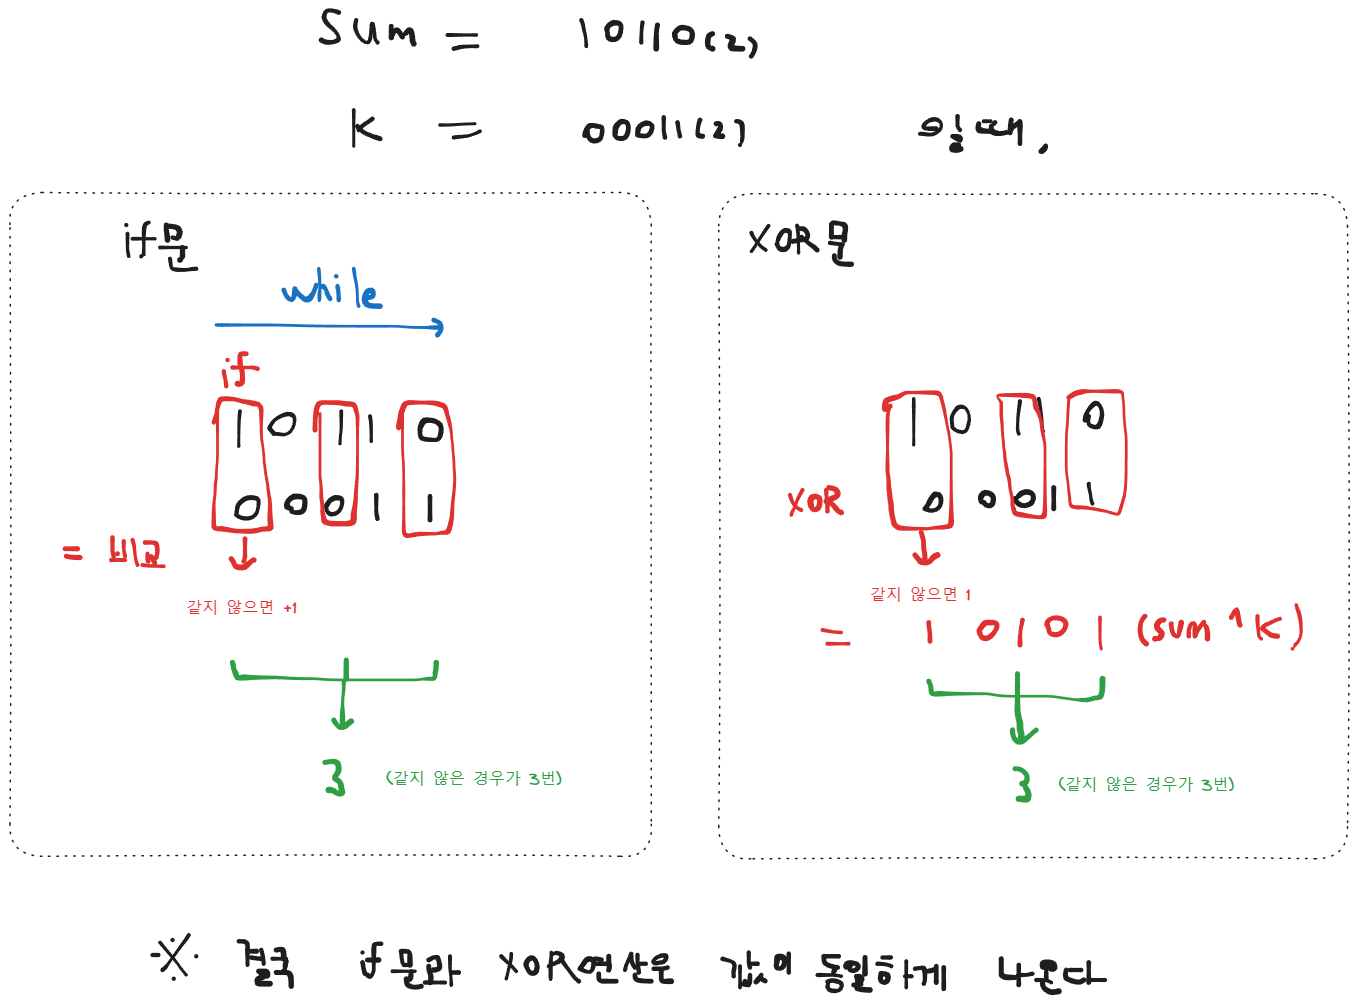 Sum = 10110(2)
K = 00011(2) 일때.
if문
while
if
1 0 1 1 0
0 0 0 1 1
= 비교
같지 않으면 +1
3 (같지 않은 경우가 3번)
XOR문
1 0 1 1 0
XOR 0 0 0 1 1
같지 않으면 1
= 1 0 1 0 1 (sum ^ K)
3 (같지 않은 경우가 3번)
※ 결국 if문과 XOR연산은 값이 동일하게 나온다